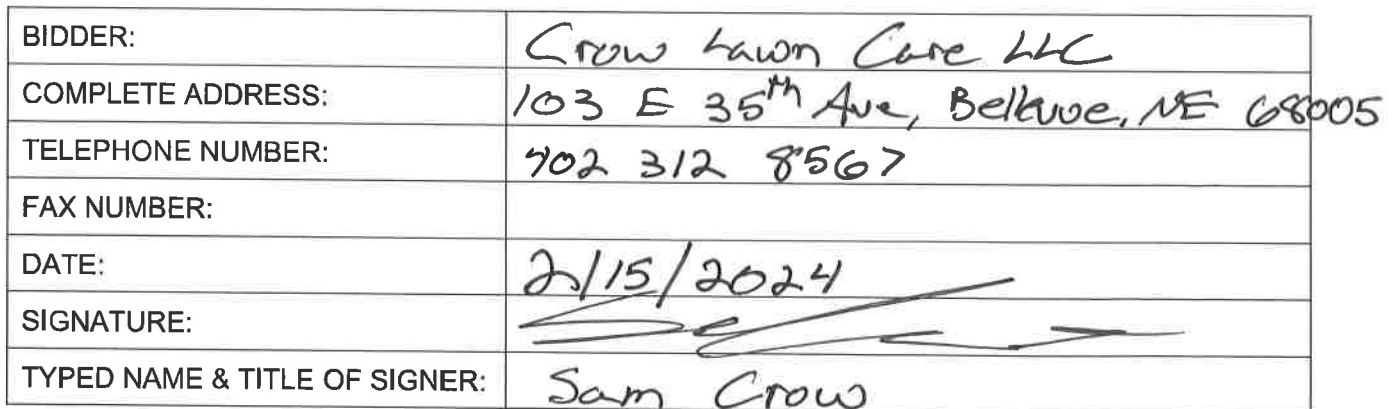 BIDDER: Crow Lawn Care LLC
COMPLETE ADDRESS: 103 E 35th Ave, Bellevue, NE 68005
TELEPHONE NUMBER: 402 312 8567
FAX NUMBER:
DATE: 2/15/2024
SIGNATURE:
TYPED NAME & TITLE OF SIGNER: Sam Crow